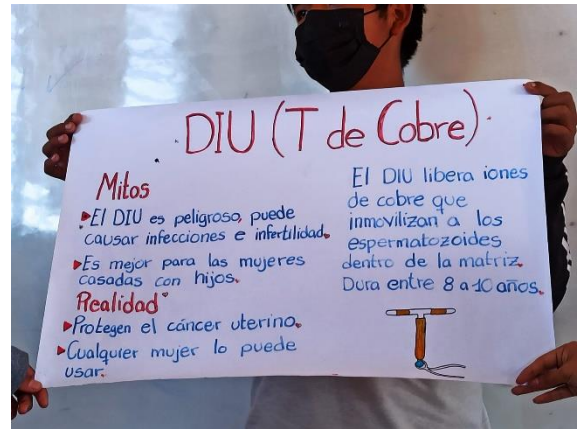 DIU (T de Cobre)
Mitos
El DIU es peligroso, puede
causar infecciones e infertilidad.
Es mejor para las mujeres
casadas con hijos.
Realidad
Protegen el cáncer uterino.
Cualquier mujer lo puede
usar.
El DIU libera iones
de cobre que
inmovilizan a los
espermatozoides
dentro de la matriz.
Dura entre 8 a 10 años.